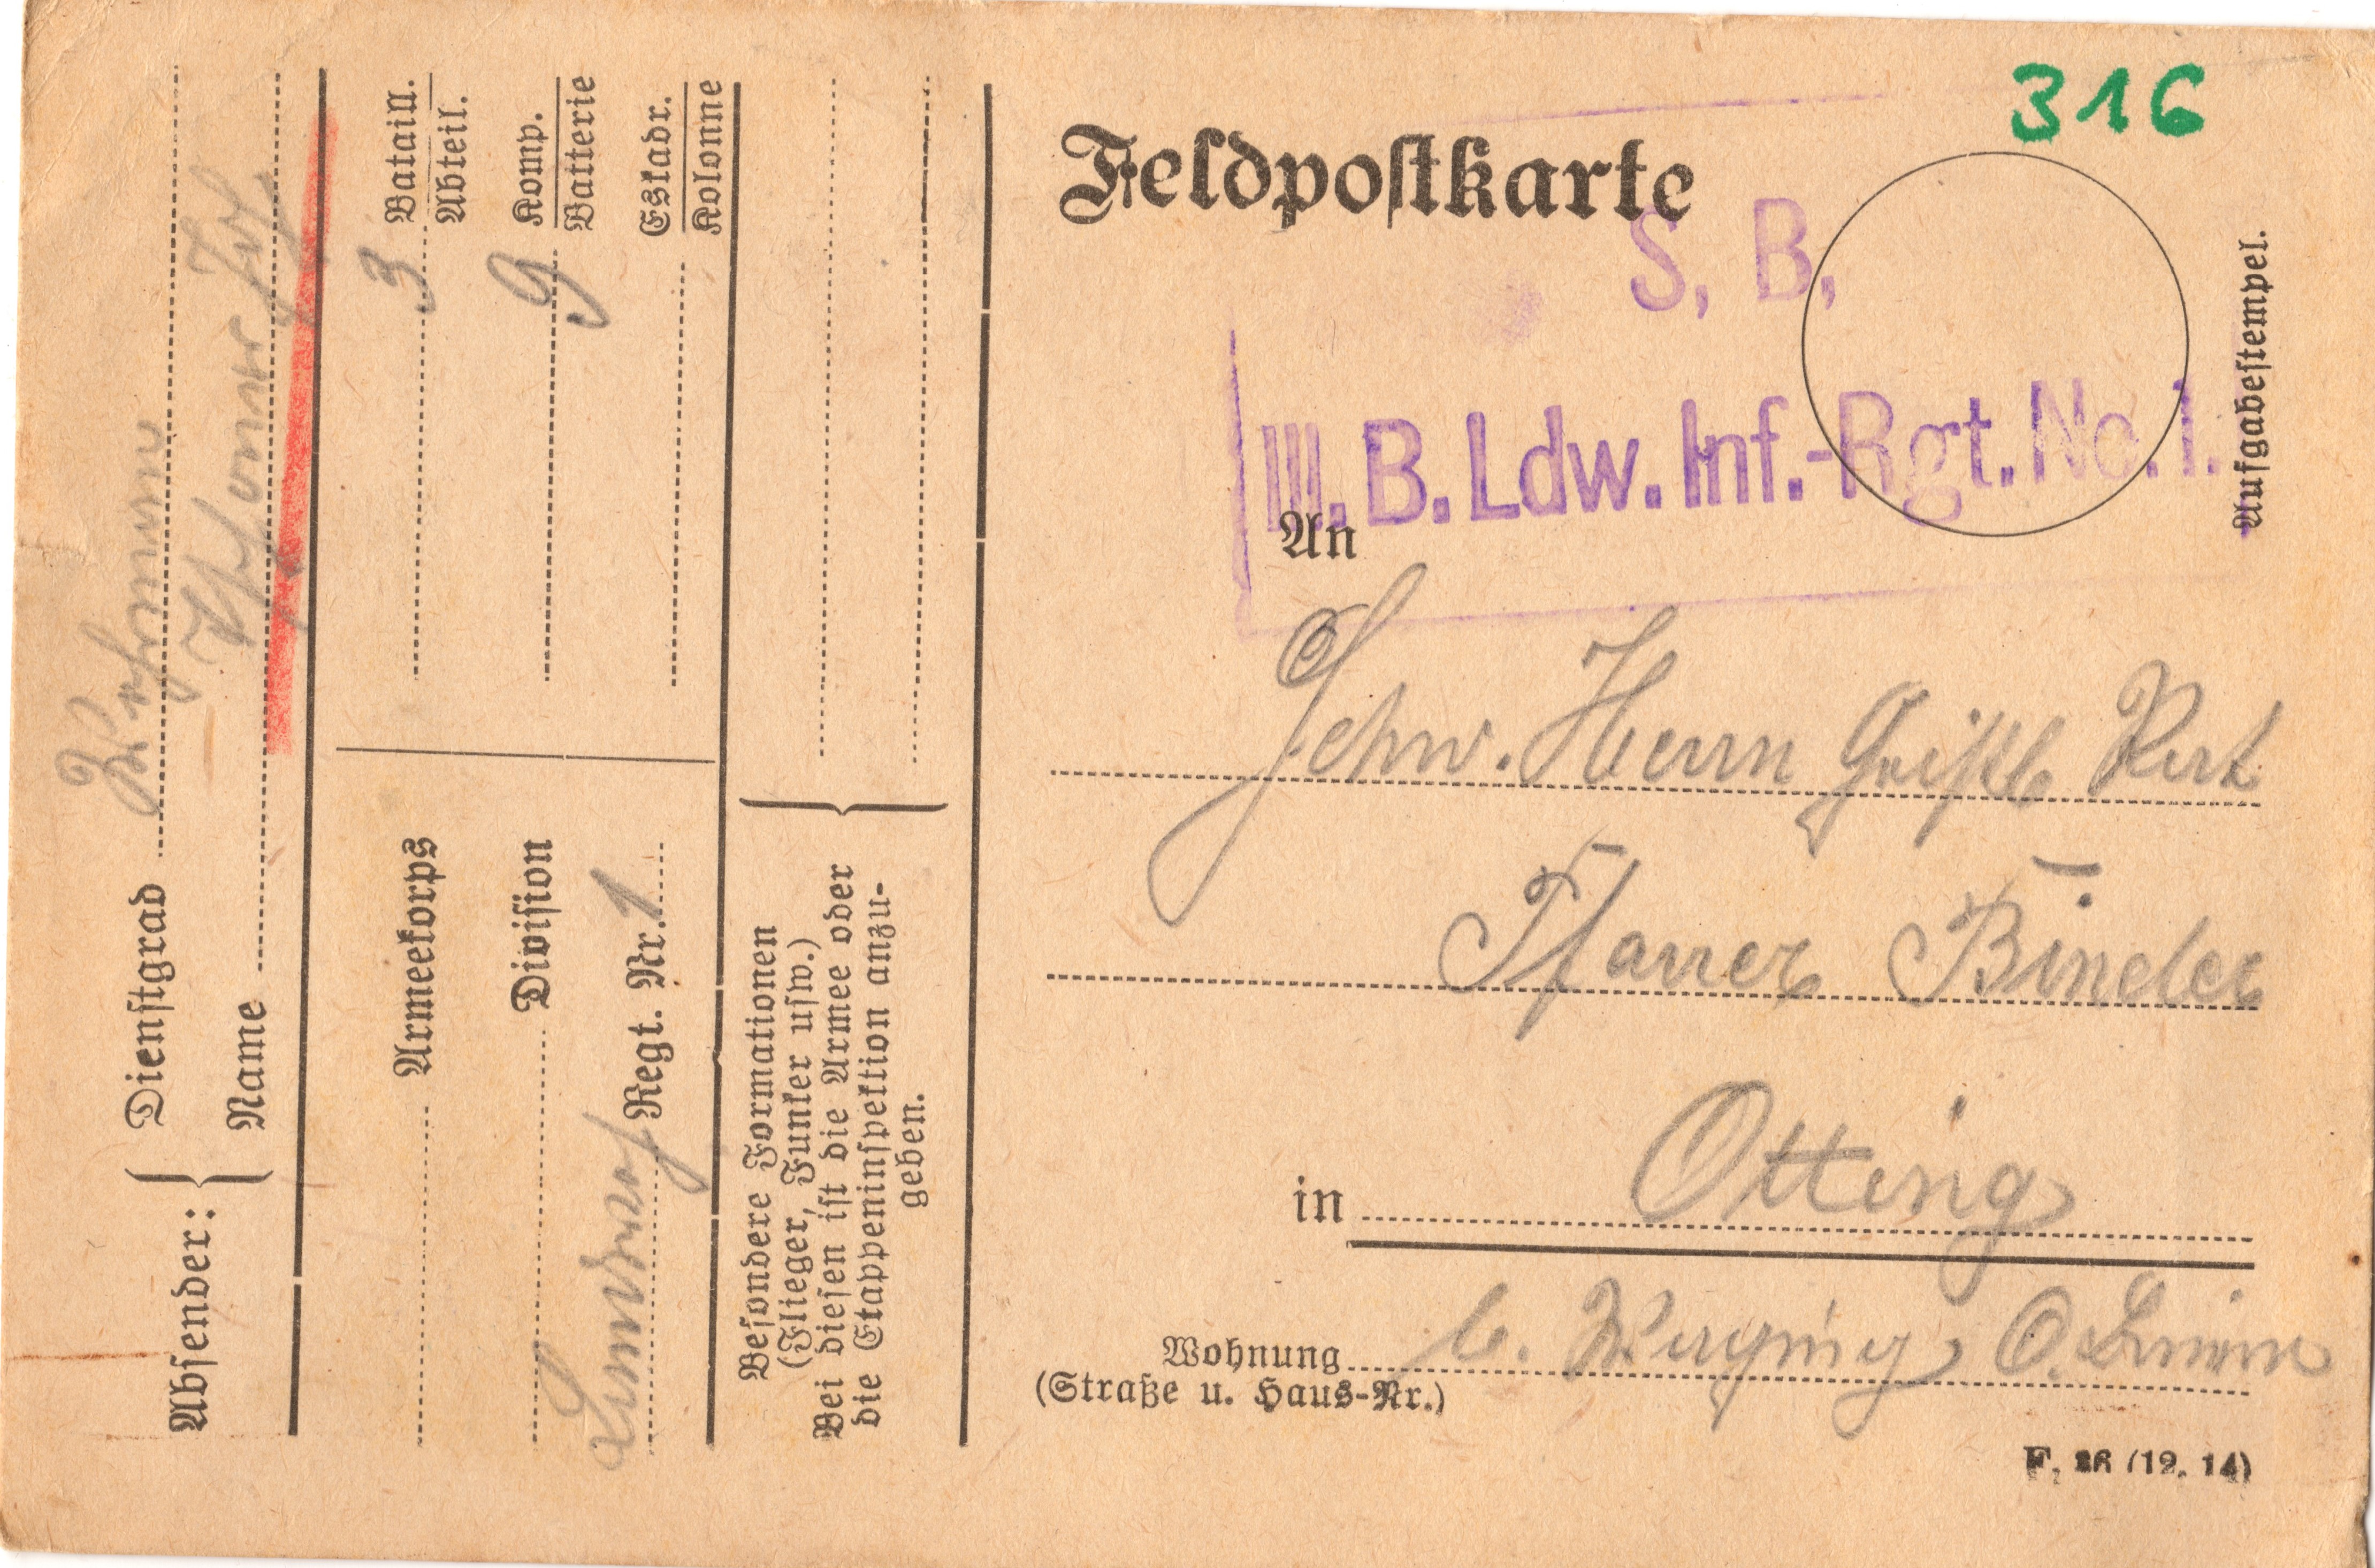 Absender:
Dienstgrad Wehrmann
Name
3 Bataill.
Abteil.
9 Komp.
Batterie
Eskadr.
Kolonne
Armeekorps
Division
Landwehr Regt. Nr. 1
Besondere Formationen
(Flieger, Funker usw.)
Bei diesen ist die Armee oder
die Etappeninspektion anzu-
geben.
316
Feldpostkarte
S. B.
III. B. Ldw. Inf.-Rgt. No. 1.
Aufgabestempel.
An
Hochw. Herrn Geistl. Rat
Pfarrer Binder
in Otting
Wohnung b. Waging O.
(Straße u. Haus-Nr.)
F. 26 (12. 14)